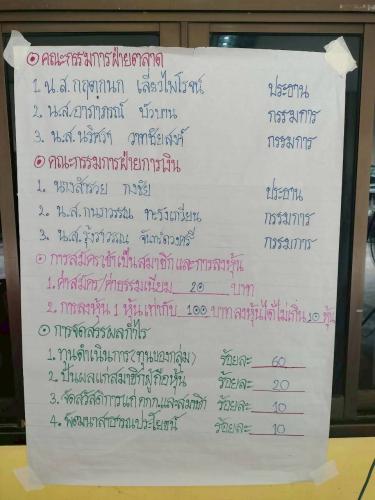 ๏ คณะกรรมการฝ่ายตลาด
1. น.ส.กฤตกนก เลี่ยวไพโรจน์ ประธาน
2. น.ส.อาภาภรณ์ บัวบาน กรรมการ
3. น.ส.นริศวา วาทชัยสงค์ กรรมการ
๏ คณะกรรมการฝ่ายการเงิน
1. นางสำรวย กงชัย ประธาน
2. น.ส.กนกวรรณ ทะรังเกวียน กรรมการ
3. น.ส.รุ้งราวรรณ จันทร์ดวงศรี กรรมการ
๏ การสมัครเข้าเป็นสมาชิกและการลงหุ้น
1. ค่าสมัคร/ค่าธรรมเนียม 20 บาท
2. การลงหุ้น 1 หุ้นเท่ากับ 100 บาท ลงหุ้นได้ไม่เกิน 10 หุ้น
๏ การจัดสรรผลกำไร
1. ทุนดำเนินการ(ทุนของกลุ่ม) ร้อยละ 60
2. ปันผลแก่สมาชิกผู้ถือหุ้น ร้อยละ 20
3. จัดสวัสดิการแก่ คกก.และสมาชิก ร้อยละ 10
4. พัฒนาสาธารณประโยชน์ ร้อยละ 10